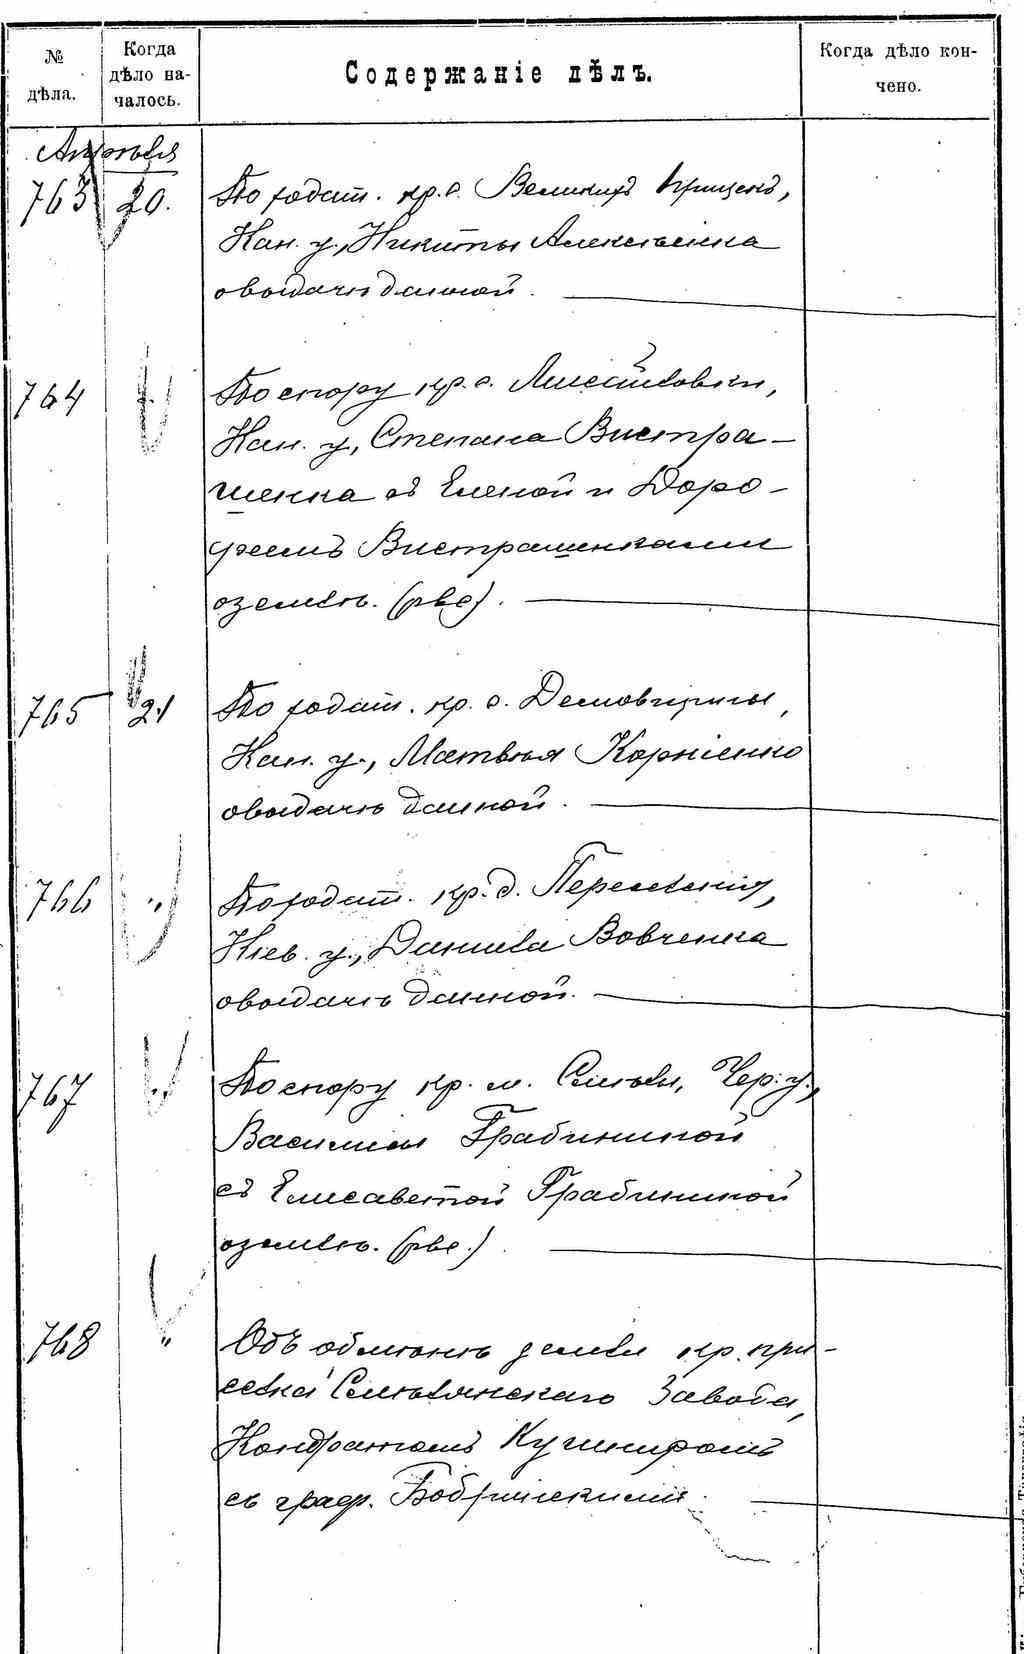 № дѣла.
Когда дѣло началось.
Содержаніе дѣлъ.
Когда дѣло кончено.
Апрѣля
763 20. По ходат. кр. с. Великихъ Прицекъ,
Кан. у., Никиты Алексѣенка
о выдачѣ данной.
764 " По спору кр. с.
Кан. у., Степана Выстра-
шенка съ Еленой и Доро-
феемъ Вистрашенками
о землѣ. (рве).
765 21 По ходат. кр. с. Демовщины,
Кан. у., Матвѣя Корніенко
о выдачѣ данной.
766 " По ходат. кр. д.
Кіев. у., Данила Вовченка
о выдачѣ данной.
767 " По спору кр. м. Смѣлы, Чер. у.,
Василисы Грабининой
съ Елисаветой Грабининой
о землѣ. (рве.)
768 " Объ обмѣнѣ земли кр. при-
селка Смѣлянскаго Завода,
Кондратомъ Кушниромъ
съ граф. Бобринскими.